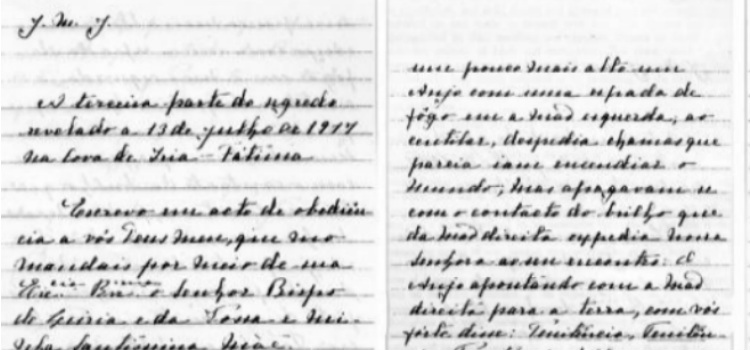 J. M. J.
A terceira parte do segredo
revelado a 13 de julho de 1917
na Cova de Iria – Fátima
Escrevo em acto de obediên
cia a vós Deus meu, que mo
mandais por meio de sua
Ex.cia Rev.ma o Senhor Bispo
de Leiria e da Vossa e mi-
nha Santíssima Mãe.
um pouco mais alto um
Anjo com uma espada de
fôgo em a mão esquerda; ao
cintilar, despedia chamas que
parecia iam encendiar o
mundo; mas apagavam-se
com o contacto do brilho que
da mão direita expedia Nossa
Senhora ao seu encontro: O
Anjo apontando com a mão
direita para a terra, com vós
forte disse: Penitência, Penitên-